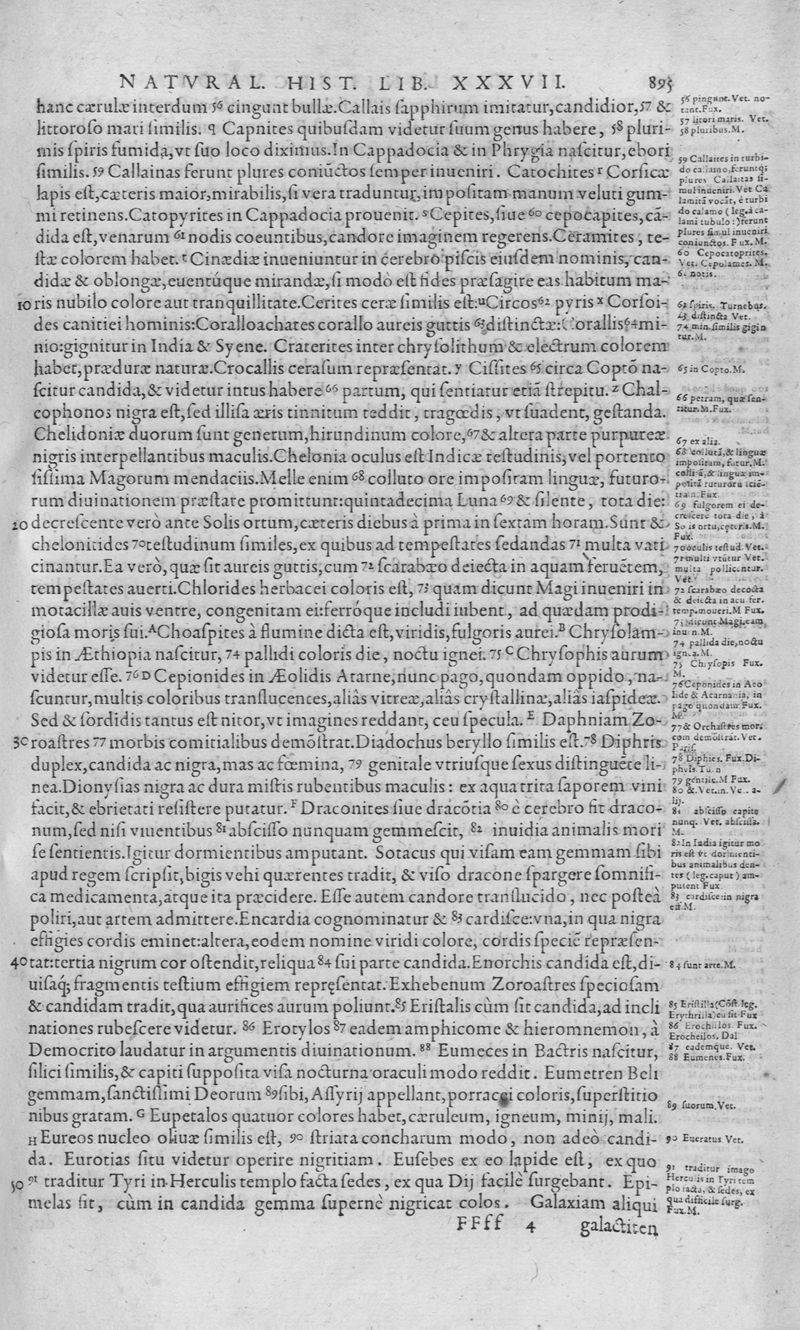 NATVRAL. HIST. LIB. XXXVII. 895
hanc cærulæ interdum 56 cingunt bullæ.Callais ſapphirum imitatur,candidior,57 &
littoroſo mari ſimilis. ¶ Capnites quibuſdam videtur ſuum genus habere, 58 pluri-
mis ſpiris fumida,vt ſuo loco diximus.In Cappadocia & in Phrygia naſcitur,ebori
ſimilis. 59 Callainas ferunt plures coniũctos ſemper inueniri. Catochites r Corſicæ
lapis eſt,cæteris maior,mirabilis,ſi vera traduntur,impoſitam manum veluti gum-
mi retinens.Catopyrites in Cappadocia prouenit. s Cepites,ſiue 60 cepocapites,cã-
dida eſt,venarum 61 nodis coeuntibus,candore imaginem regerens.Ceramites, te-
ſtæ colorem habet. t Cinædiæ inueniuntur in cerebro piſcis eiuſdem nominis, can-
didæ & oblongæ,euentúque mirandæ,ſi modò eſt fides præſagire eas habitum ma-
10 ris nubilo colore aut tranquillitate.Cerites ceræ ſimilis eſt: u Circos 62 pyris x Corſoi-
des canitiei hominis:Coralloachates corallo aureis guttis 63 diſtincta: Corallis 64 mi-
nio:gignitur in India & Syene. Craterites inter chryſolithum & electrum colorem
habet,præduræ naturæ.Crocallis ceraſum repræſentat. y Ciſſites 65 circa Coptō na-
ſcitur candida,& videtur intus habere 66 partum, qui ſentiatur etiã ſtrepitu. z Chal-
cophonos nigra eſt,ſed illiſa æris tinnitum reddit, tragœdis, vt ſuadent, geſtanda.
Chelidoniæ duorum ſunt generum,hirundinum colore,67 & altera parte purpureæ
nigris interpellantibus maculis.Chelonia oculus eſt Indicæ teſtudinis,vel portento
ſiſſima Magorum mendaciis.Melle enim 68 colluto ore impoſitam linguæ, futuro-
rum diuinationem præſtare promittunt:quintadecima Luna 69 & ſilente, tota die:
20 decreſcente verò ante Solis ortum,cæteris diebus à prima in ſextam horam.Sunt &
chelonitides 70 teſtudinum ſimiles,ex quibus ad tempeſtates ſedandas 71 multa vati
cinantur.Ea verò,quæ ſit aureis guttis,cum 72 ſcarabæo deiecta in aquam feruētem,
tempeſtates auerti.Chlorides herbacei coloris eſt, 73 quam dicunt Magi inueniri in
motacillæ auis ventre, congenitam ei:ferróque includi iubent, ad quædam prodi-
gioſa moris ſui. A Choaſpites à flumine dicta eſt,viridis,fulgoris aurei. B Chryſolam-
pis in Æthiopia naſcitur, 74 pallidi coloris die, noctu ignei. 75 C Chryſophis aurum
videtur eſſe. 76 D Cepionides in Æolidis Atarne,nunc pago,quondam oppido, na-
ſcuntur,multis coloribus tranſlucentes,aliâs vitreæ,aliâs cryſtallinæ,aliâs iaſpideæ.
Sed & ſordidis tantus eſt nitor,vt imagines reddant, ceu ſpecula. E Daphniam Zo-
30 roaſtres 77 morbis comitialibus demōſtrat.Diadochus beryllo ſimilis eſt. 78 Diphris
duplex,candida ac nigra,mas ac fœmina, 79 genitale vtriuſque ſexus diſtinguēte li-
nea.Dionyſias nigra ac dura miſtis rubentibus maculis: ex aqua trita ſaporem vini
facit,& ebrietati reſiſtere putatur. F Draconites ſiue dracōtia 80 è cerebro fit draco-
num,ſed niſi viuentibus 81 abſciſſo nunquam gemmeſcit, 82 inuidia animalis mori
ſe ſentientis.Igitur dormientibus amputant. Sotacus qui viſam eam gemmam ſibi
apud regem ſcripſit,bigis vehi quærentes tradit, & viſo dracone ſpargere ſomnifi-
ca medicamenta,atque ita præcidere. Eſſe autem candore tranſlucido, nec poſteà
poliri,aut artem admittere.Encardia cognominatur & 83 cardiſce:vna,in qua nigra
effigies cordis eminet:altera,eodem nomine viridi colore, cordis ſpeciē repræſen-
40 tat:tertia nigrum cor oſtendit,reliqua 84 ſui parte candida.Enorchis candida eſt,di-
uiſaq; fragmentis teſtium effigiem repręſentat. Exhebenum Zoroaſtres ſpecioſam
& candidam tradit,qua aurifices aurum poliunt.85 Eriſtalis cùm ſit candida,ad incli
nationes rubeſcere videtur. 86 Erotylos 87 eadem amphicome & hieromnemon, à
Democrito laudatur in argumentis diuinationum. 88 Eumeces in Bactris naſcitur,
ſilici ſimilis,& capiti ſuppoſita viſa nocturna oraculi modo reddit. Eumetren Beli
gemmam,ſanctiſſimi Deorum 89 ſibi,Aſſyrij appellant,porracei coloris,ſuperſtitio
nibus gratam. G Eupetalos quatuor colores habet,cæruleum, igneum, minij, mali.
H Eureos nucleo oliuæ ſimilis eſt, 90 ſtriata concharum modo, non adeò candi-
da. Eurotias ſitu videtur operire nigritiam. Euſebes ex eo lapide eſt, ex quo
50 91 traditur Tyri in Herculis templo facta ſedes, ex qua Dij facilè ſurgebant. Epi-
melas fit, cùm in candida gemma ſupernè nigricat colos. Galaxiam aliqui
FFff 4 galactiten
56 pingunt. Vet. no-
tant.Fux.
57 litori maris. Vet.
58 pluribus.M.
59 Callaites in turbi-
do calamo,feruntq;
plures Callaitas ſi-
mul inueniri. Vet Ca
lamitã vocãt, è turbi
do calamo ( leg.à ca-
lami tubulo :)ferunt
plures ſimul inueniri.
coniunctos. Fux. M.
60 Cepocatoprites.
Vet. Cepolames. M.
61 notis.
62 ſpiris. Turnebus.
63 diſtincta Vet.
74 min. ſimilis gigni
tur.M.
65 in Copto.M.
66 petram, quæ ſen-
tiatur.M.Fux.
67 ex alia.
68 colluta,& linguæ
impoſitam, futur.M.
69 fulgorem ei de-
creſcere tota die, à
So is ortu,ceteris.M.
Fux.
70 oculis teſtud. Vet.
71 multi vtũtur Vet.
multa pollicentur.
Vet.
72 ſcarabæo decocta
& deiecta in acu fer.
temp.moueri.M Fux.
73 dicunt Magi,eam
inuen M.
74 pallida die,noctu
ign.a.M.
75 Chryſopis Fux.
M.
76 Ceponides in Aeo
lide & Acarnania, in
pago quondam.Fux.
M.
77 & Orchaſtres mor.
com demōſtrat. Vet.
Pariſ.
78 Diphies. Fux.Di-
phyis.Tu n
79 gentile.M Fux.
80 &.Vet.in.
81 abſciſſo capite
nunq. Vet. abſciſſa.
M.
82 In India igitur mo
ris eſt vt dormienti-
bus animalibus den-
tes ( leg.caput ) am-
putent Fux
83 cardiſce:in nigra
eff.M.
84 ſunt arte.M.
85 Eriſtilla(Cōſt. leg.
Erythrilla)cũ ſit Fux
86 Erochilos Fux.
Erocheilos. Dal
87 eademque. Vet.
88 Eumenes.Fux.
89 ſuorum.Vet.
90 Eueratus Vet.
91 traditur imago
Herculis in Tyri tem
plo facta, & ſedes, ex
qua difficile ſurg.
Fux.M.